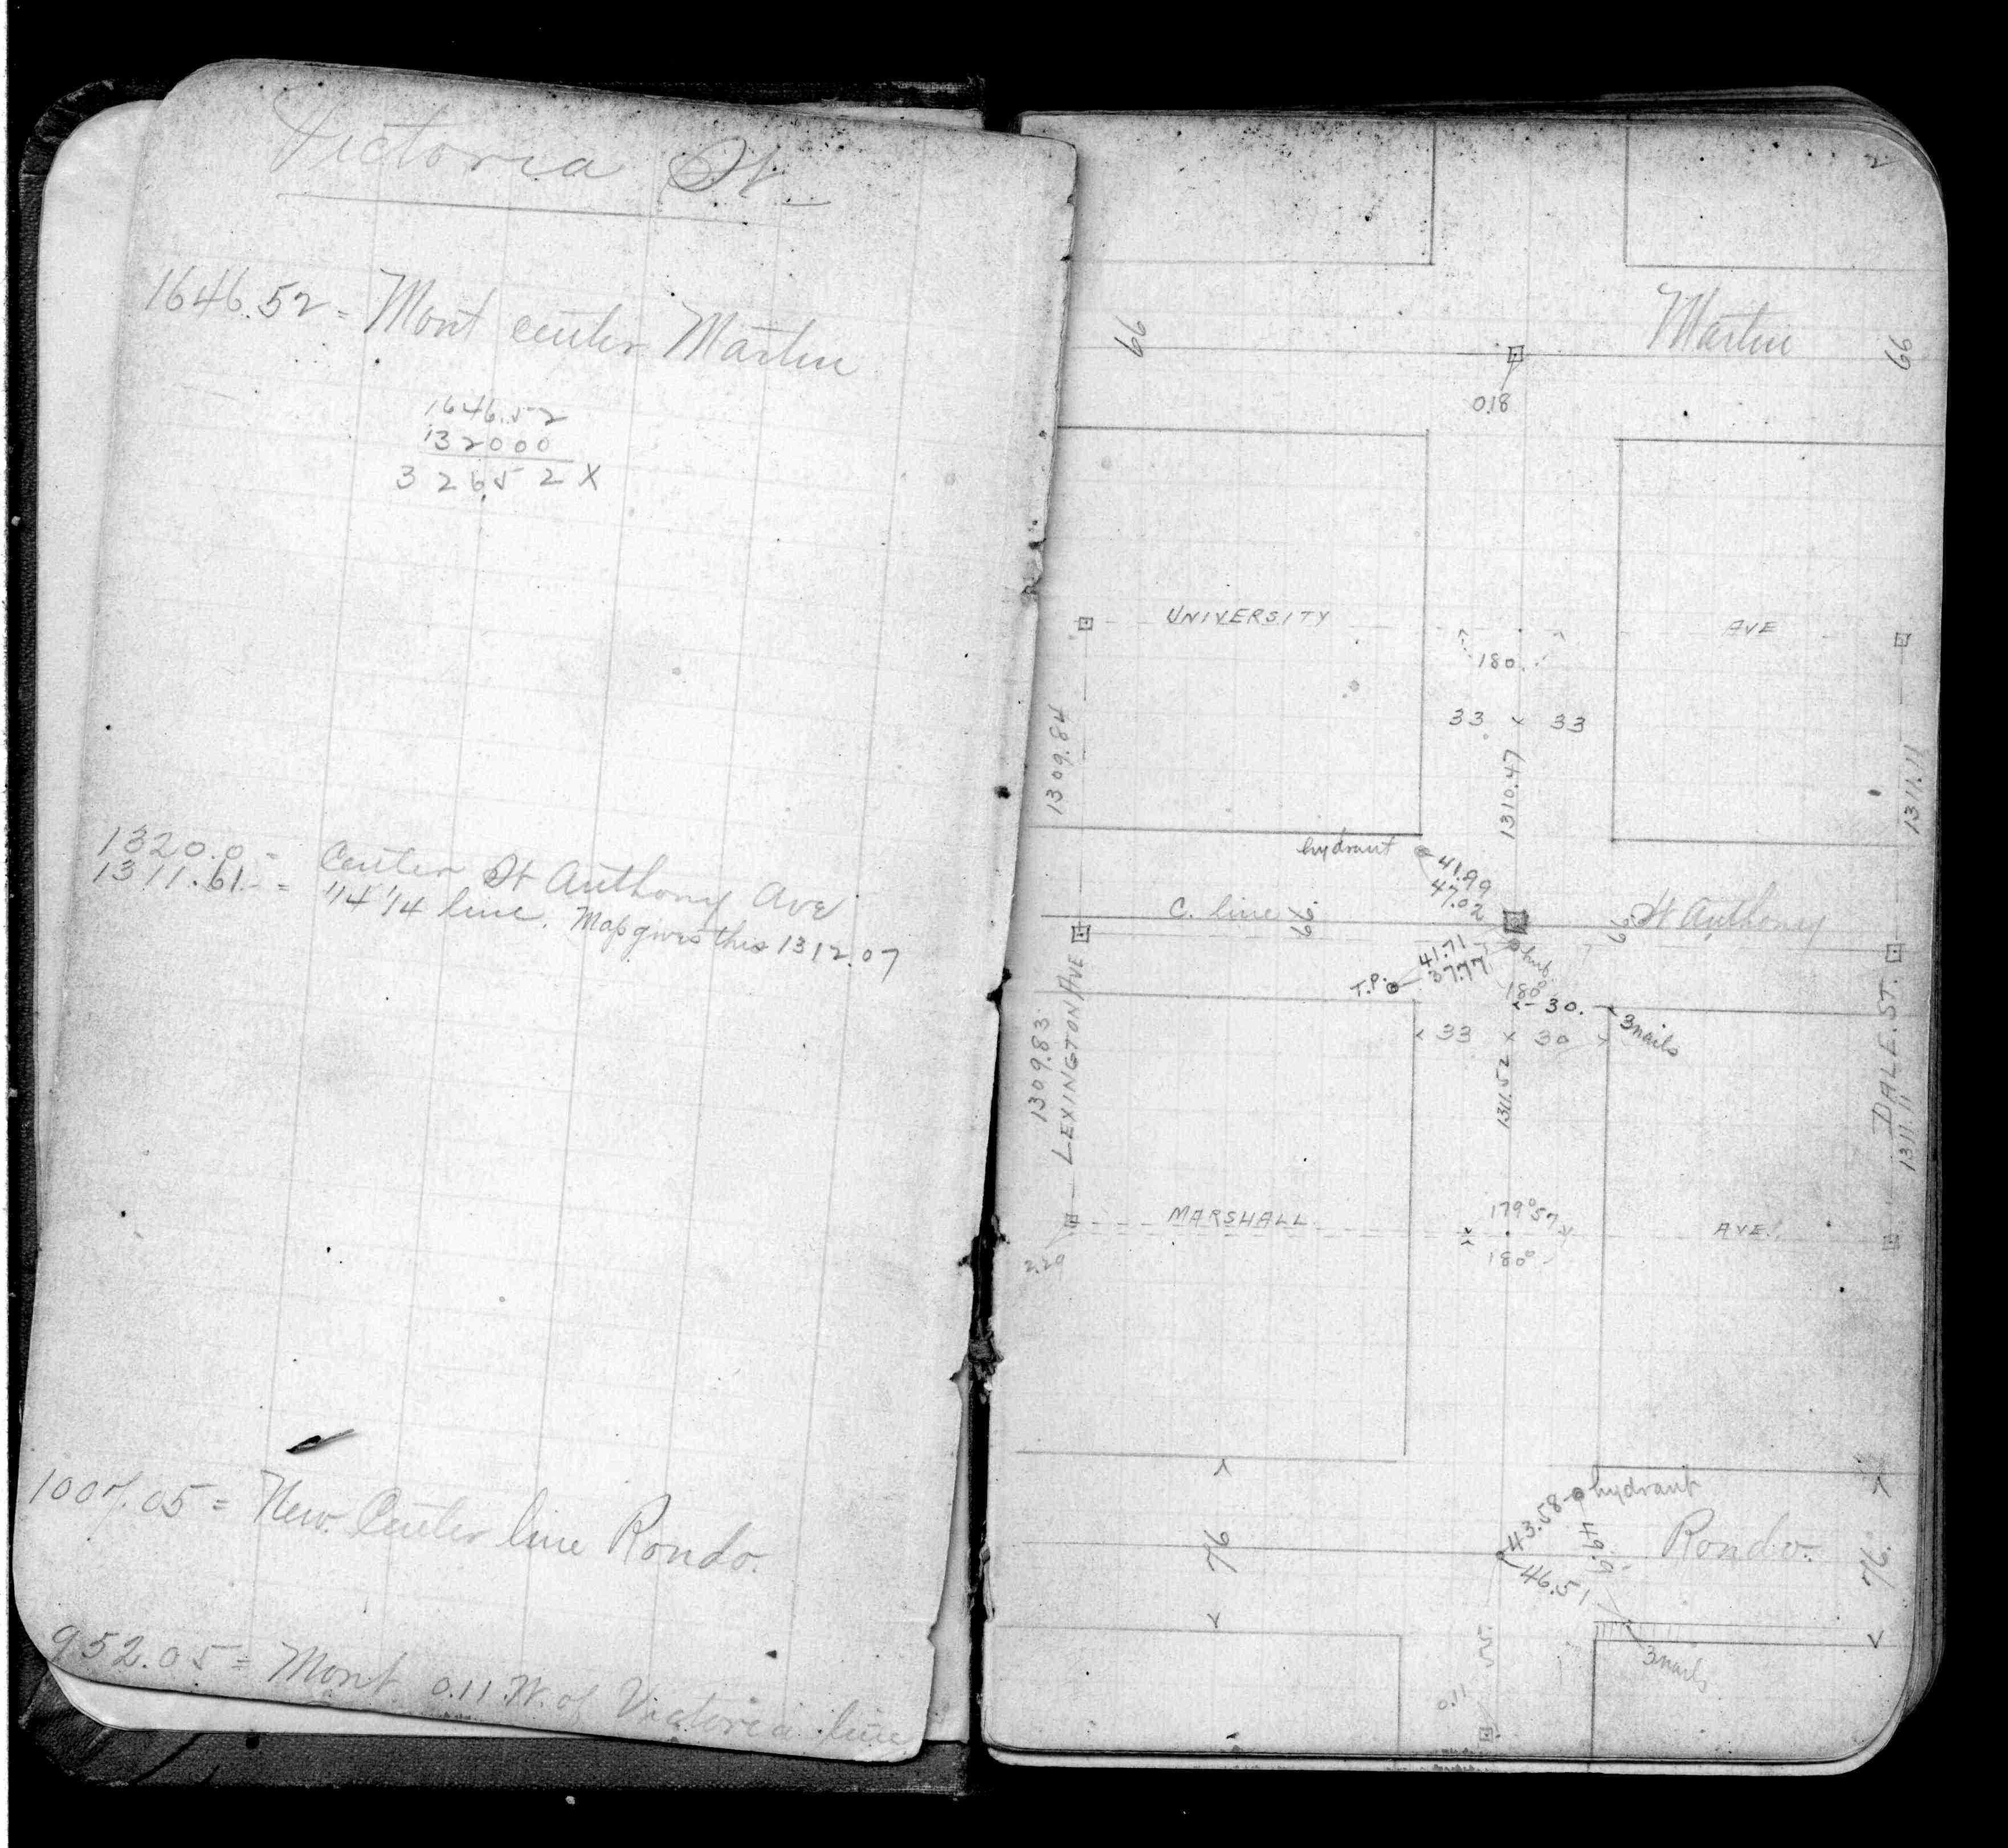 Victoria St
1646.52 = Mont center Martin
1646.52
132000
326652 X
1320.0 = Center St Anthony Ave
1311.61 = 1/4 1/4 line. Map gives this 1312.07
1007.05 = New Center line Rondo.
952.05 = Mont 0.11 W. of Victoria line
2
66 Martin 66
0.18
UNIVERSITY AVE
180.
33 33
1309.84
1310.47
1311.11
hydrant
41.99
47.02
C. line 66 66 St Anthony
41.71
37.77
hub
T.P.
180°
30.
3 nails
33 30
LEXINGTON AVE
1309.83
1311.52
DALE. ST.
1311.11
MARSHALL AVE.
179°57
180°
2.29
hydrant
43.58
49.9
46.51
76 Rondo. 76.
3 nails
55.
0.11